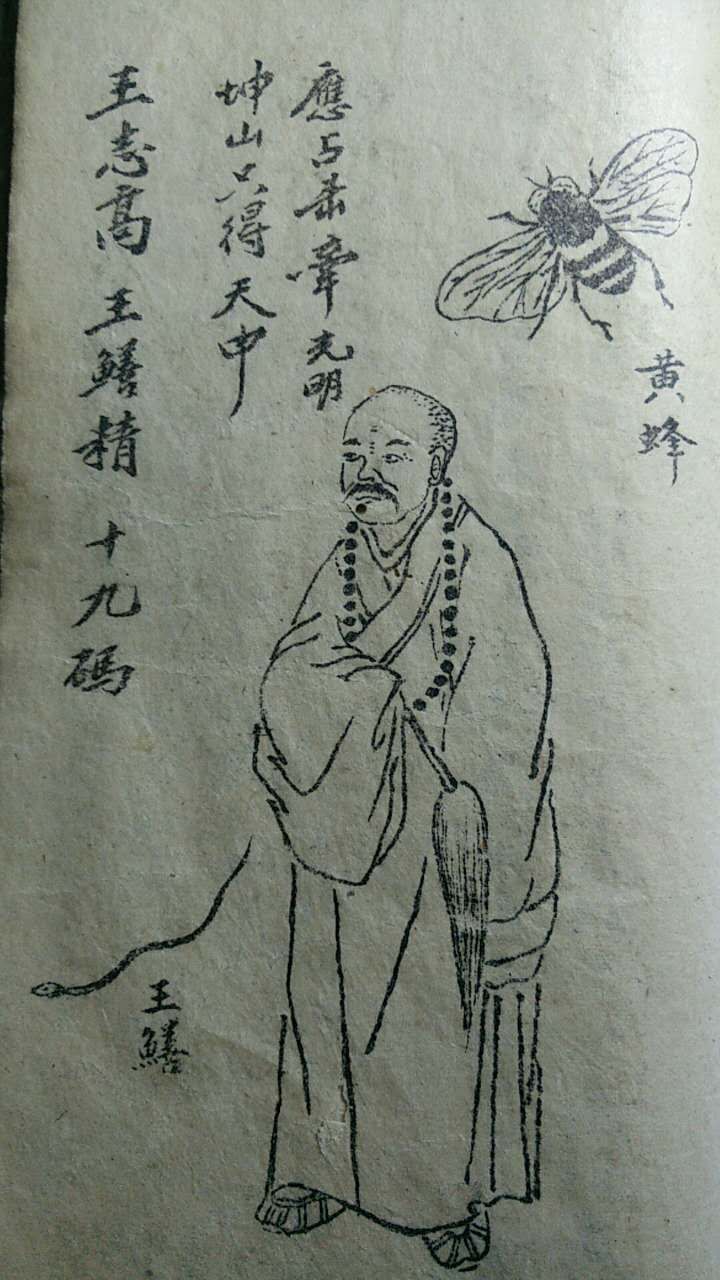 黄蜂
應占杀犖光明
坤山只得天申
王志高 王鱔精 十九碼
王鱔